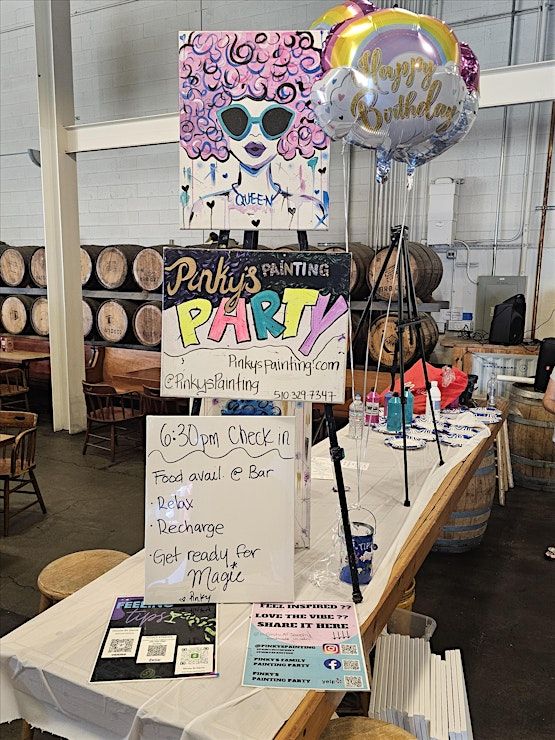 Happy
Birthday
QUEEN
Pinky's PAINTING
PARTY
PinkysPainting.com
@PinkysPainting
510 329.7347
6:30pm Check in
Food avail. @ Bar
· Relax
· Recharge
· Get ready for
Magic
Pinky
FEELING
Tipsy
FEEL INSPIRED ??
LOVE THE VIBE ??
SHARE IT HERE
@PINKYSPAINTING
PINKY'S FAMILY
PAINTING PARTY
PINKY'S
PAINTING PARTY
yelp